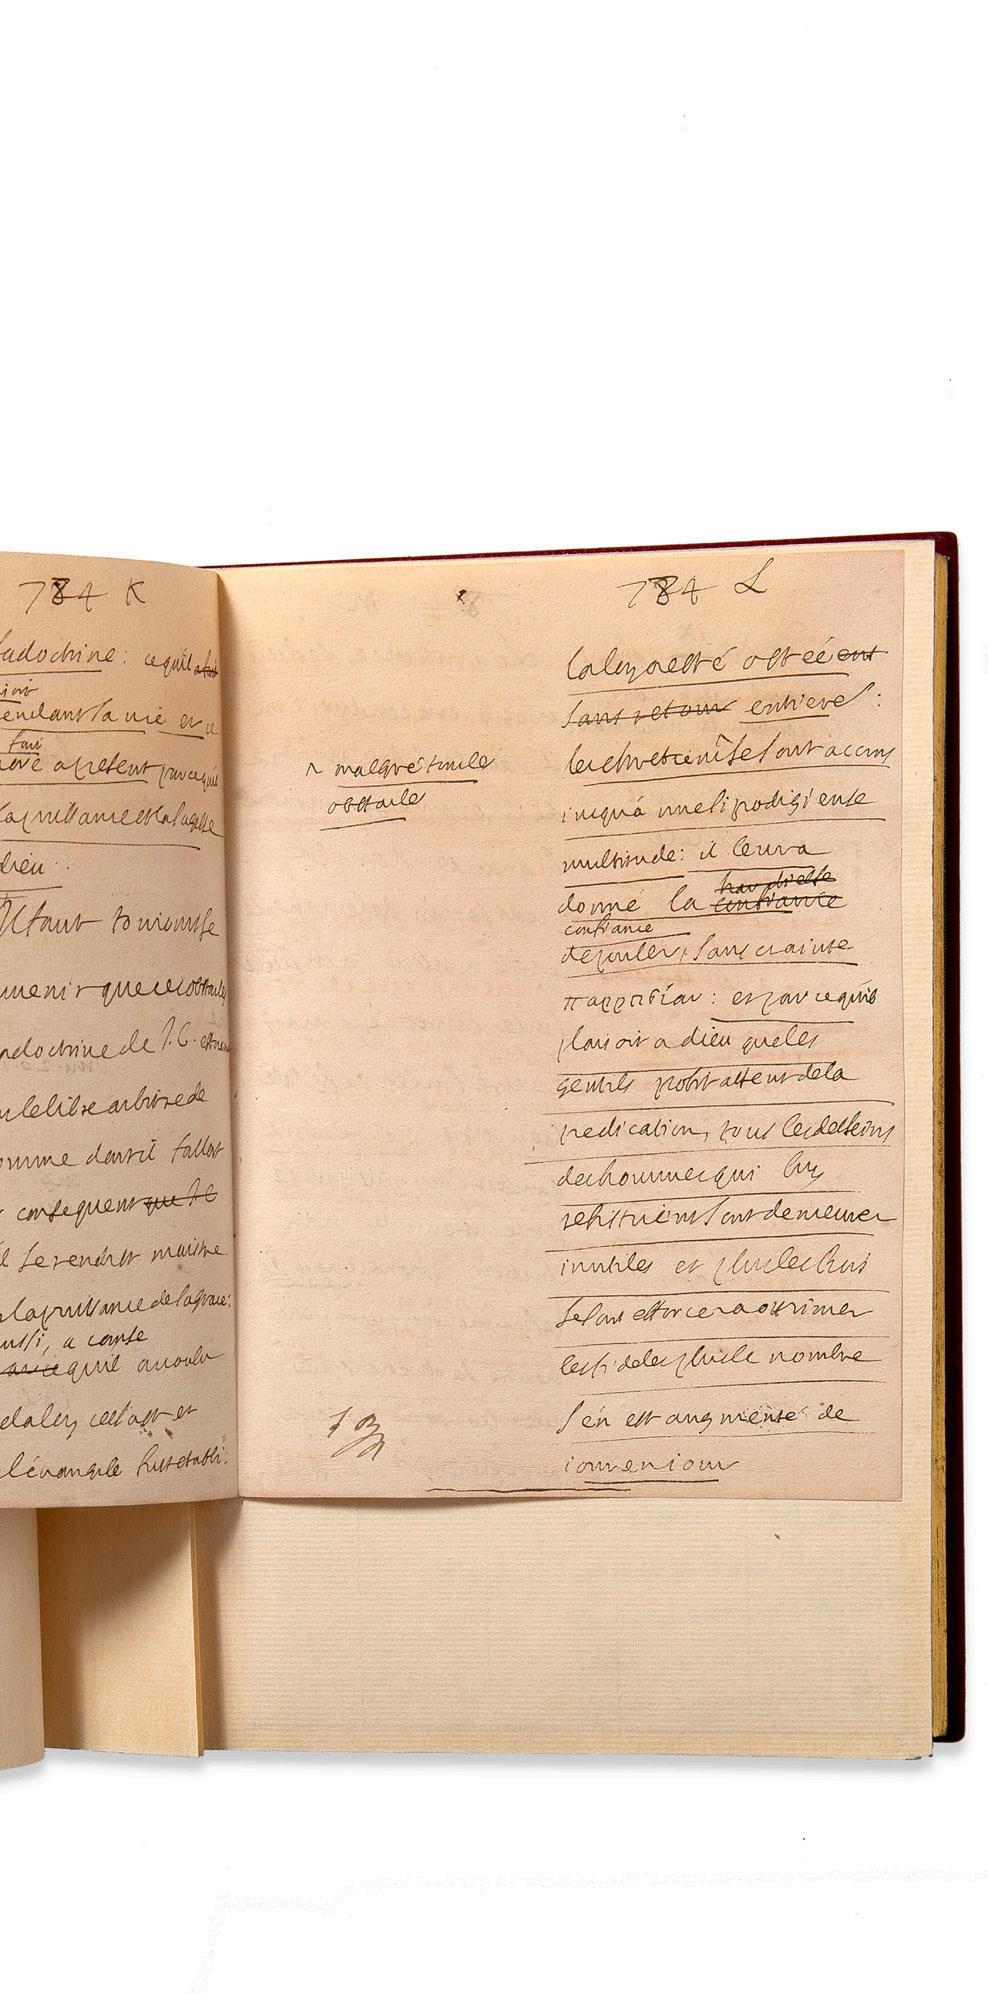 784 K
la doctrine: ce qu'il a fait
pendant sa vie et
fait
a present parce qu'il
la puissance et la sagesse
dieu.
Il faut tousiours se
souvenir que ces obstacles
la doctrine de J.C.
le libre arbitre de
homme dont il falloit
consequent que J C
il se rendist maistre
la puissance de la grace:
aussi, a cause
qu'il a voulu
de la loy et
l'évangile fust establi:
784 L
la loy a esté ostée ent
sans retour entiere :
les chretiens se sont accrus
^ malgré tout le
obstacle
iusqu'à une si prodigieuse
multitude: il leur a
hardiesse
donné la confiance
confiance
de parler, sans crainte
παρρησίαν : et parce qu'il
plaisoit a dieu que les
gentils profitassent de la
predication, tous les desseins
des hommes qui luy
resistoient sont demeurez
inutiles et plus les Iuifs
se sont efforcez a opprimer
les fideles plus le nombre
s'en est augmenté de
iour en iour